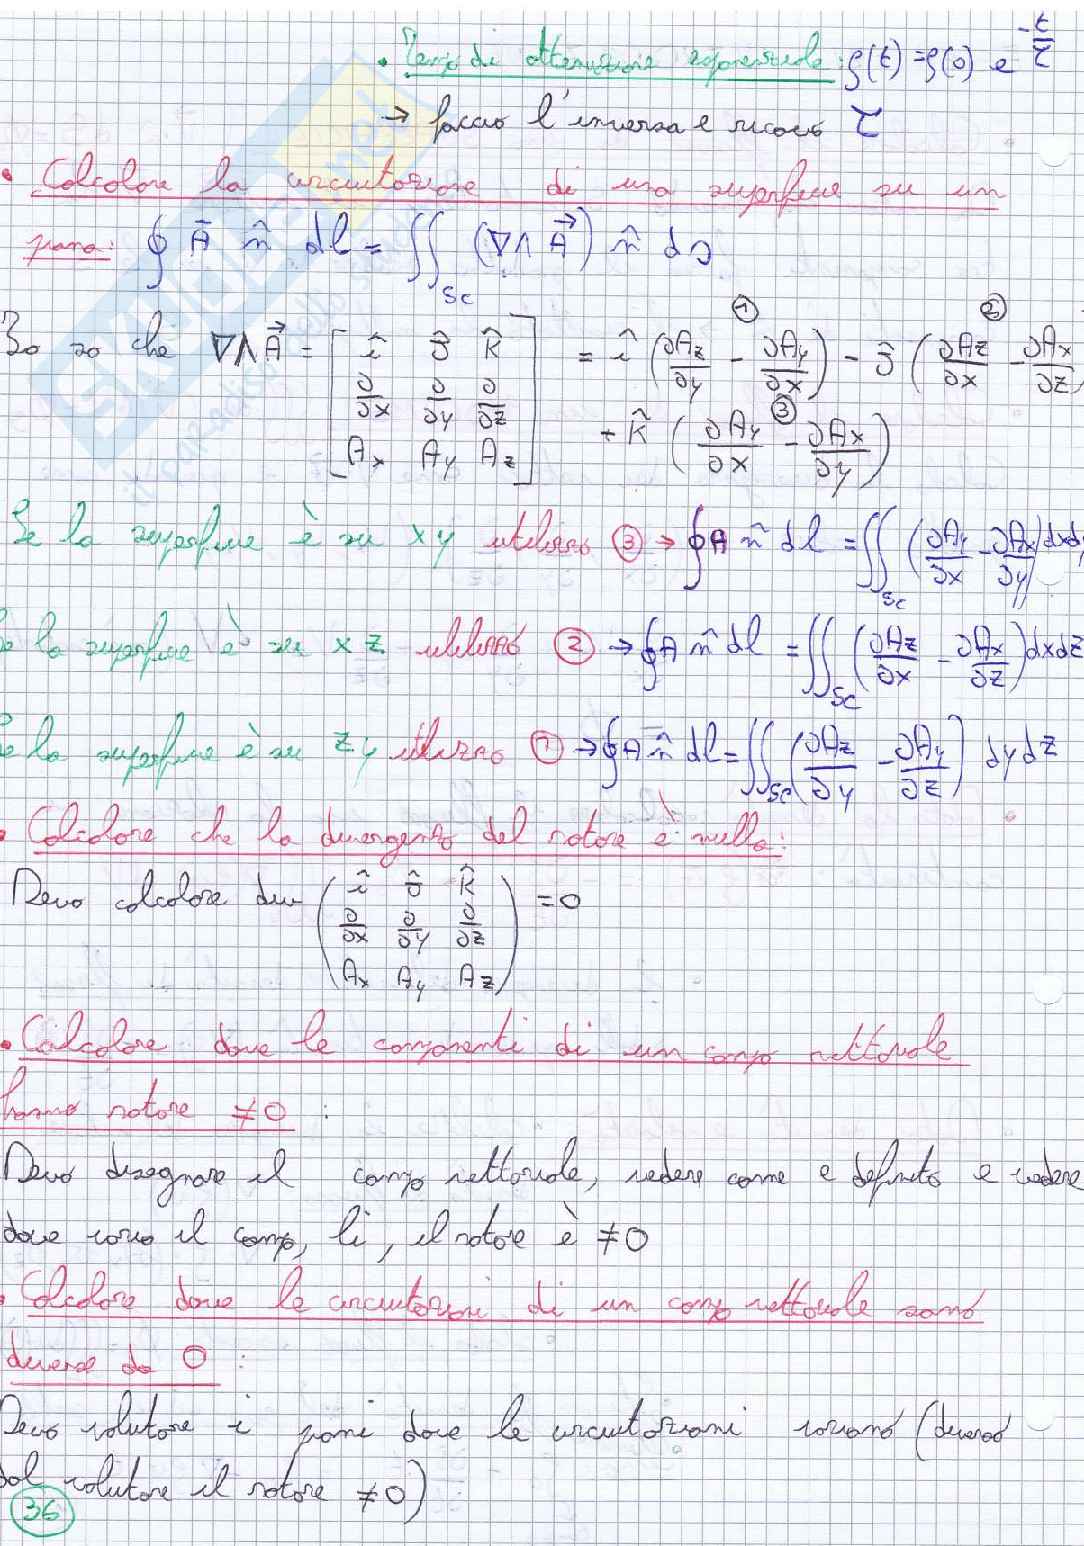 • Tempo di attenuazione esponenziale: ρ(t) = ρ(0) e^(-t/τ)
→ faccio l'inversa e ricavo τ
• Calcolare la circuitazione di una superficie su un
piano: ∮ A n̂ dl = ∬_Sc (∇∧A) n̂ ds
Io so che ∇∧A = [î ĵ k̂ ; ∂/∂x ∂/∂y ∂/∂z ; Ax Ay Az] = î (∂Az/∂y - ∂Ay/∂x) ① - ĵ (∂Az/∂x - ∂Ax/∂z) ②
+ k̂ (∂Ay/∂x - ∂Ax/∂y) ③
Se la superficie è su xy utilizzo ③ → ∮ A n̂ dl = ∬_Sc (∂Ay/∂x - ∂Ax/∂y) dxdy
Se la superficie è su xz utilizzo ② → ∮ A n̂ dl = ∬_Sc (∂Az/∂x - ∂Ax/∂z) dxdz
Se la superficie è su zy utilizzo ① → ∮ A n̂ dl = ∬_Sc (∂Az/∂y - ∂Ay/∂z) dydz
• Calcolare che la divergenza del rotore è nulla:
Devo calcolare div (î ĵ k̂ ; ∂/∂x ∂/∂y ∂/∂z ; Ax Ay Az) = 0
• Calcolare dove le componenti di un campo vettoriale
hanno rotore ≠0 :
Devo disegnare il campo vettoriale, vedere come e definito e vedere
dove varia il campo, li, il rotore è ≠0
• Calcolare dove le circuitazioni di un campo vettoriale sono
diverse da 0 :
Devo valutare i piani dove le circuitazioni variano (diverso
dal valutare il rotore ≠0)
36